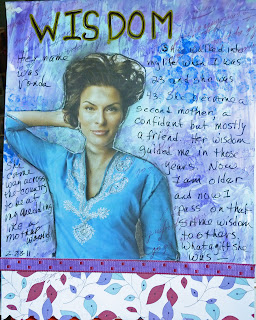 WISDOM
Her name
was
Vonda
She walked into
my life when I was
23 and she was
43 She became a
second mother, a
confident but mostly
a friend. Her wisdom
guided me in those
years. Now
I am older
and now I
pass on that
same wisdom
to others
what a gift she
was
She
came
way across
the country
to be at
my wedding
like a
mother
would